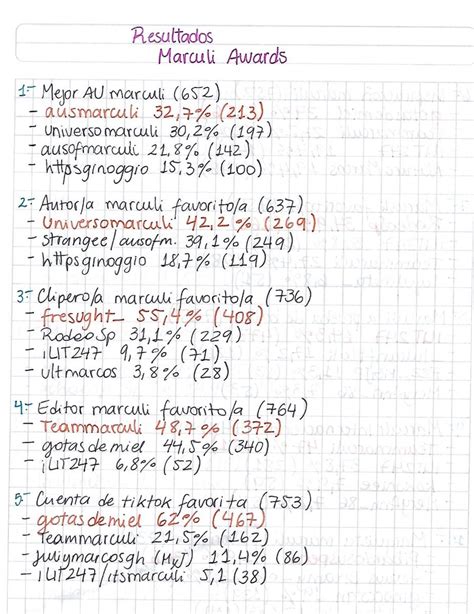 Resultados
Marculi Awards
1.- Mejor AU marculi (652)
- ausmarculi 32,7% (213)
- universomarculi 30,2% (197)
- ausofmarculi 21,8% (142)
- httpsginoggio 15,3% (100)
2.- Autor/a marculi favorito/a (637)
- Universomarculi 42,2% (269)
- strangee/ausofm. 39,1% (249)
- httpsginoggio 18,7% (119)
3.- Clipero/a marculi favorito/a (736)
- fresught_ 55,4% (408)
- RodeoSp 31,1% (229)
- iLIT247 9,7% (71)
- ultmarcos 3,8% (28)
4.- Editor marculi favorito/a (764)
- Teammarculi 48,7% (372)
- gotasdemiel 44,5% (340)
- iLIT247 6,8% (52)
5.- Cuenta de tiktok favorita (753)
- gotasdemiel 62% (467)
- Teammarculi 21,5% (162)
- julymarcosgh (MxJ) 11,4% (86)
- iLIT247/itsmarculi 5,1 (38)